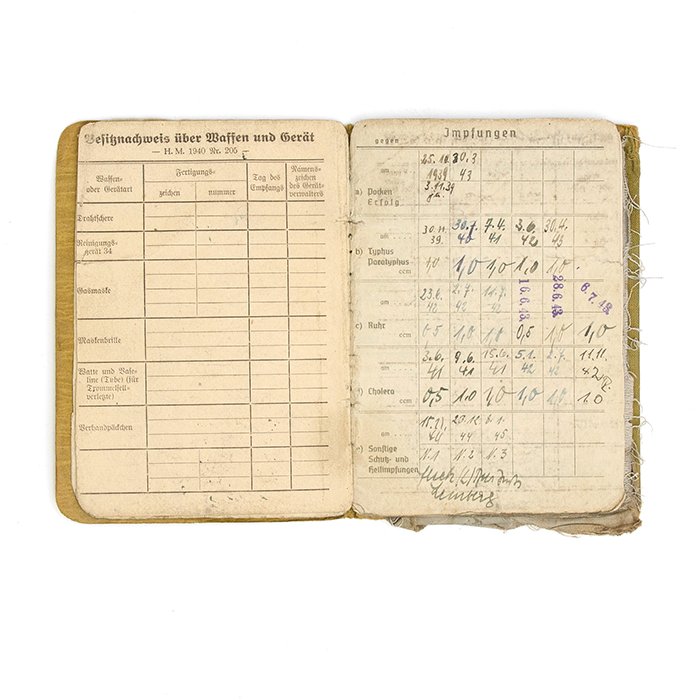 Besitznachweis über Waffen und Gerät
— H. M. 1940 Nr. 205 —
Waffen- oder Geräteart
Fertigungs-
zeichen
nummer
Tag des Empfangs
Namens-zeichen des Gerät-verwalters
Drahtschere
Reinigungs-gerät 34
Gasmaske
Maskenbrille
Watte und Vase-line (Tube) (für Trommelfell-verletzte)
Verbandpäckchen
Impfungen
gegen
am 25.10. 1939 30.3 43
a) Pocken
Erfolg 3.11.39
am 30.11. 39. 30.7. 40 7.4. 41 3.6. 42 30.4. 43
b) Typhus
Paratyphus
ccm 1,0 1,0 1,0 1,0 1,0
am 23.6. 42 2.7. 42 14.7. 42 16.6.43. 28.6.43. 6.7.43.
c) Ruhr
ccm 0,5 1,0 1,0 0,5 1,0 1,0
am 3.6. 41 9.6. 41 15.6. 41 5.1. 42 2.7. 42 11.11. 42
d) Cholera
ccm 0,5 1,0 1,0 1,0 1,0 1,0
am 44 23.12 44 6.1. 45
e) Sonstige N.1 N.2 N.3
Schutz- und
Heilimpfungen
Lemberg